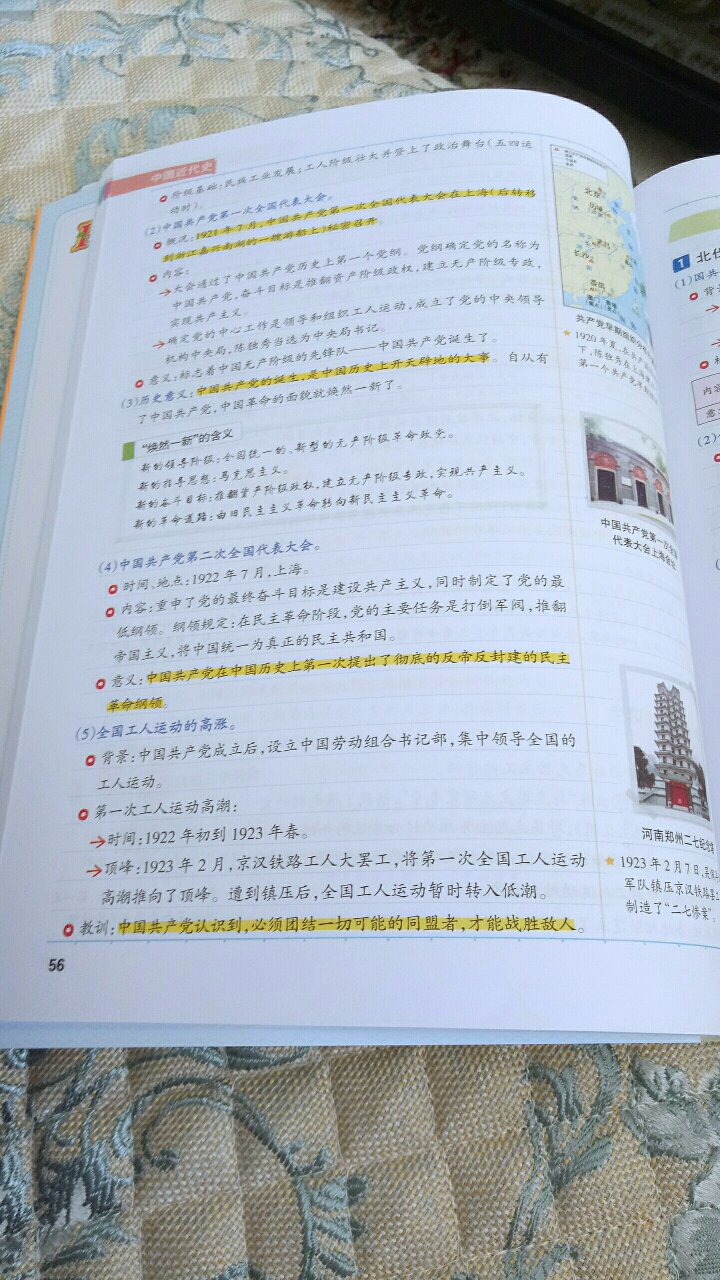 中国近代史
阶级基础:民族工业发展;工人阶级壮大并登上了政治舞台(五四运
动时)。
(2)中国共产党第一次全国代表大会。
概况:1921年7月,中国共产党第一次全国代表大会在上海(后转移
到浙江嘉兴南湖的一艘游船上)秘密召开。
内容:
→大会通过了中国共产党历史上第一个党纲。党纲确定党的名称为
中国共产党,奋斗目标是推翻资产阶级政权,建立无产阶级专政,
实现共产主义。
→确定党的中心工作是领导和组织工人运动,成立了党的中央领导
机构中央局,陈独秀当选为中央局书记。
意义:标志着中国无产阶级的先锋队——中国共产党诞生了。
(3)历史意义:中国共产党的诞生,是中国历史上开天辟地的大事。自从有
了中国共产党,中国革命的面貌就焕然一新了。
“焕然一新”的含义
新的领导阶级:全国统一的、新型的无产阶级革命政党。
新的指导思想:马克思主义。
新的奋斗目标:推翻资产阶级政权,建立无产阶级专政,实现共产主义。
新的革命道路:由旧民主主义革命转向新民主主义革命。
(4)中国共产党第二次全国代表大会。
时间、地点:1922年7月,上海。
内容:重申了党的最终奋斗目标是建设共产主义,同时制定了党的最
低纲领。纲领规定:在民主革命阶段,党的主要任务是打倒军阀,推翻
帝国主义,将中国统一为真正的民主共和国。
意义:中国共产党在中国历史上第一次提出了彻底的反帝反封建的民主
革命纲领。
(5)全国工人运动的高涨。
背景:中国共产党成立后,设立中国劳动组合书记部,集中领导全国的
工人运动。
第一次工人运动高潮:
→时间:1922年初到1923年春。
→顶峰:1923年2月,京汉铁路工人大罢工,将第一次全国工人运动
高潮推向了顶峰。遭到镇压后,全国工人运动暂时转入低潮。
教训:中国共产党认识到,必须团结一切可能的同盟者,才能战胜敌人。
56
北京
长沙
共产党早期组织分
★1920年夏,在共产
下,陈独秀在上海
第一个共产党早
中国共产党第一次全
代表大会上海会址
河南郑州二七纪念
★1923年2月7日,吴
军队镇压京汉铁路
制造了“二七惨案”。
1 北伐
(1)国共
背
内容
意
(2)